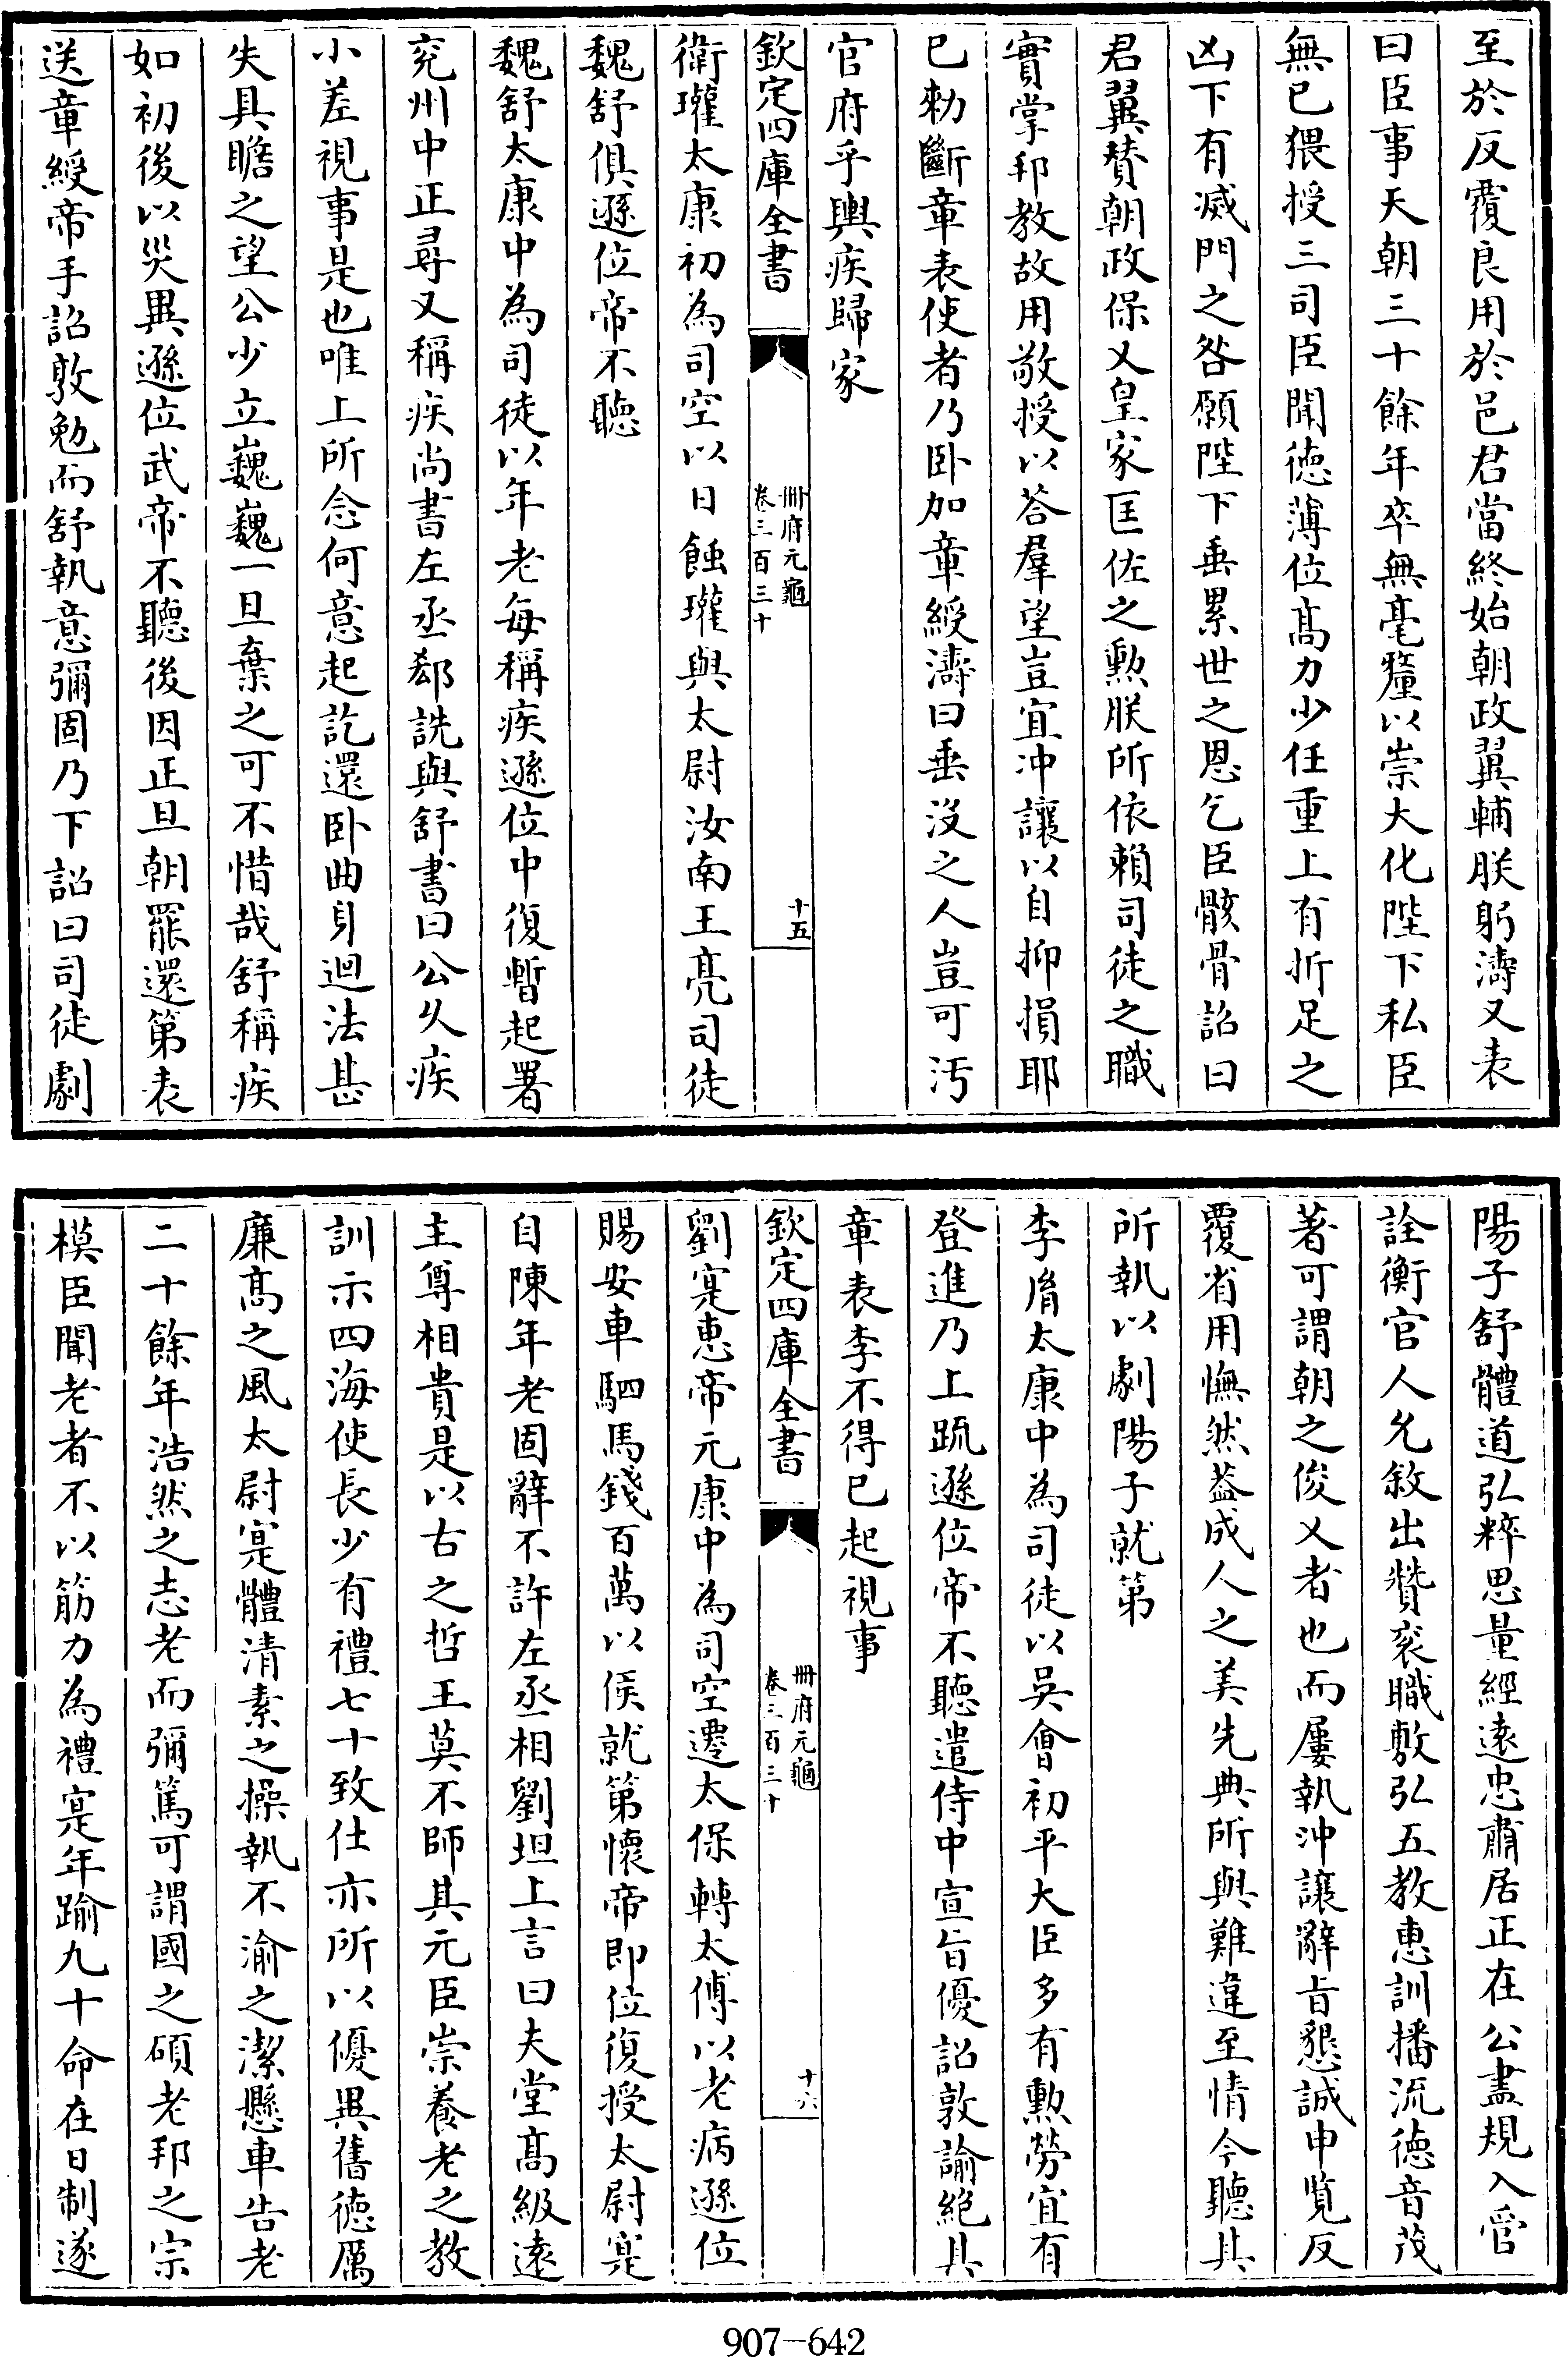 至於反覆良用於邑君當終始朝政翼輔朕躬濤又表
曰臣事天朝三十餘年卒無毫釐以崇大化陛下私臣
無已猥授三司臣聞徳薄位髙力少任重上有折足之
凶下有滅門之咎願陛下垂累世之恩乞臣骸骨詔曰
君翼賛朝政保乂皇家匡佐之勲朕所依賴司徒之職
實掌邦教故用敬授以荅羣望豈宜冲讓以自抑損耶
已勅斷章表使者乃卧加章綬濤曰垂没之人豈可汚
官府乎輿疾歸家
欽定四庫全書
冊府元龜
卷三百三十
十五
衛瓘太康初為司空以日蝕瓘與太尉汝南王亮司徒
魏舒俱遜位帝不聽
魏舒太康中為司徒以年老每稱疾遜位中復暫起署
兖州中正尋又稱疾尚書左丞郄詵與舒書曰公久疾
小差視事是也唯上所念何意起訖還卧曲身迴法甚
失具瞻之望公少立巍巍一旦棄之可不惜哉舒稱疾
如初後以災異遜位武帝不聽後因正旦朝罷還第表
送章綬帝手詔敦勉而舒執意彌固乃下詔曰司徒劇
陽子舒體道弘粹思量經逺忠肅居正在公盡規入管
詮衡官人允敘出贊衮職敷弘五教惠訓播流徳音茂
著可謂朝之俊乂者也而屢執沖讓辭旨懇誠申覧反
覆省用憮然葢成人之美先典所與難違至情今聽其
所執以劇陽子就第
李𦙍太康中為司徒以吳會初平大臣多有勲勞宜有
登進乃上疏遜位帝不聽遣侍中宣旨優詔敦諭絶其
章表李不得已起視事
欽定四庫全書
冊府元龜
卷三百三十
十六
劉寔惠帝元康中為司空遷太保轉太傅以老病遜位
賜安車駟馬錢百萬以侯就第懷帝即位復授太尉寔
自陳年老固辭不許左丞相劉坦上言曰夫堂髙級逺
主尊相貴是以古之哲王莫不師其元臣崇養老之教
訓示四海使長少有禮七十致仕亦所以優異舊徳厲
廉髙之風太尉寔體清素之操執不渝之潔懸車告老
二十餘年浩然之志老而彌篤可謂國之碩老邦之宗
模臣聞老者不以筋力為禮寔年踰九十命在日制遂
907-642